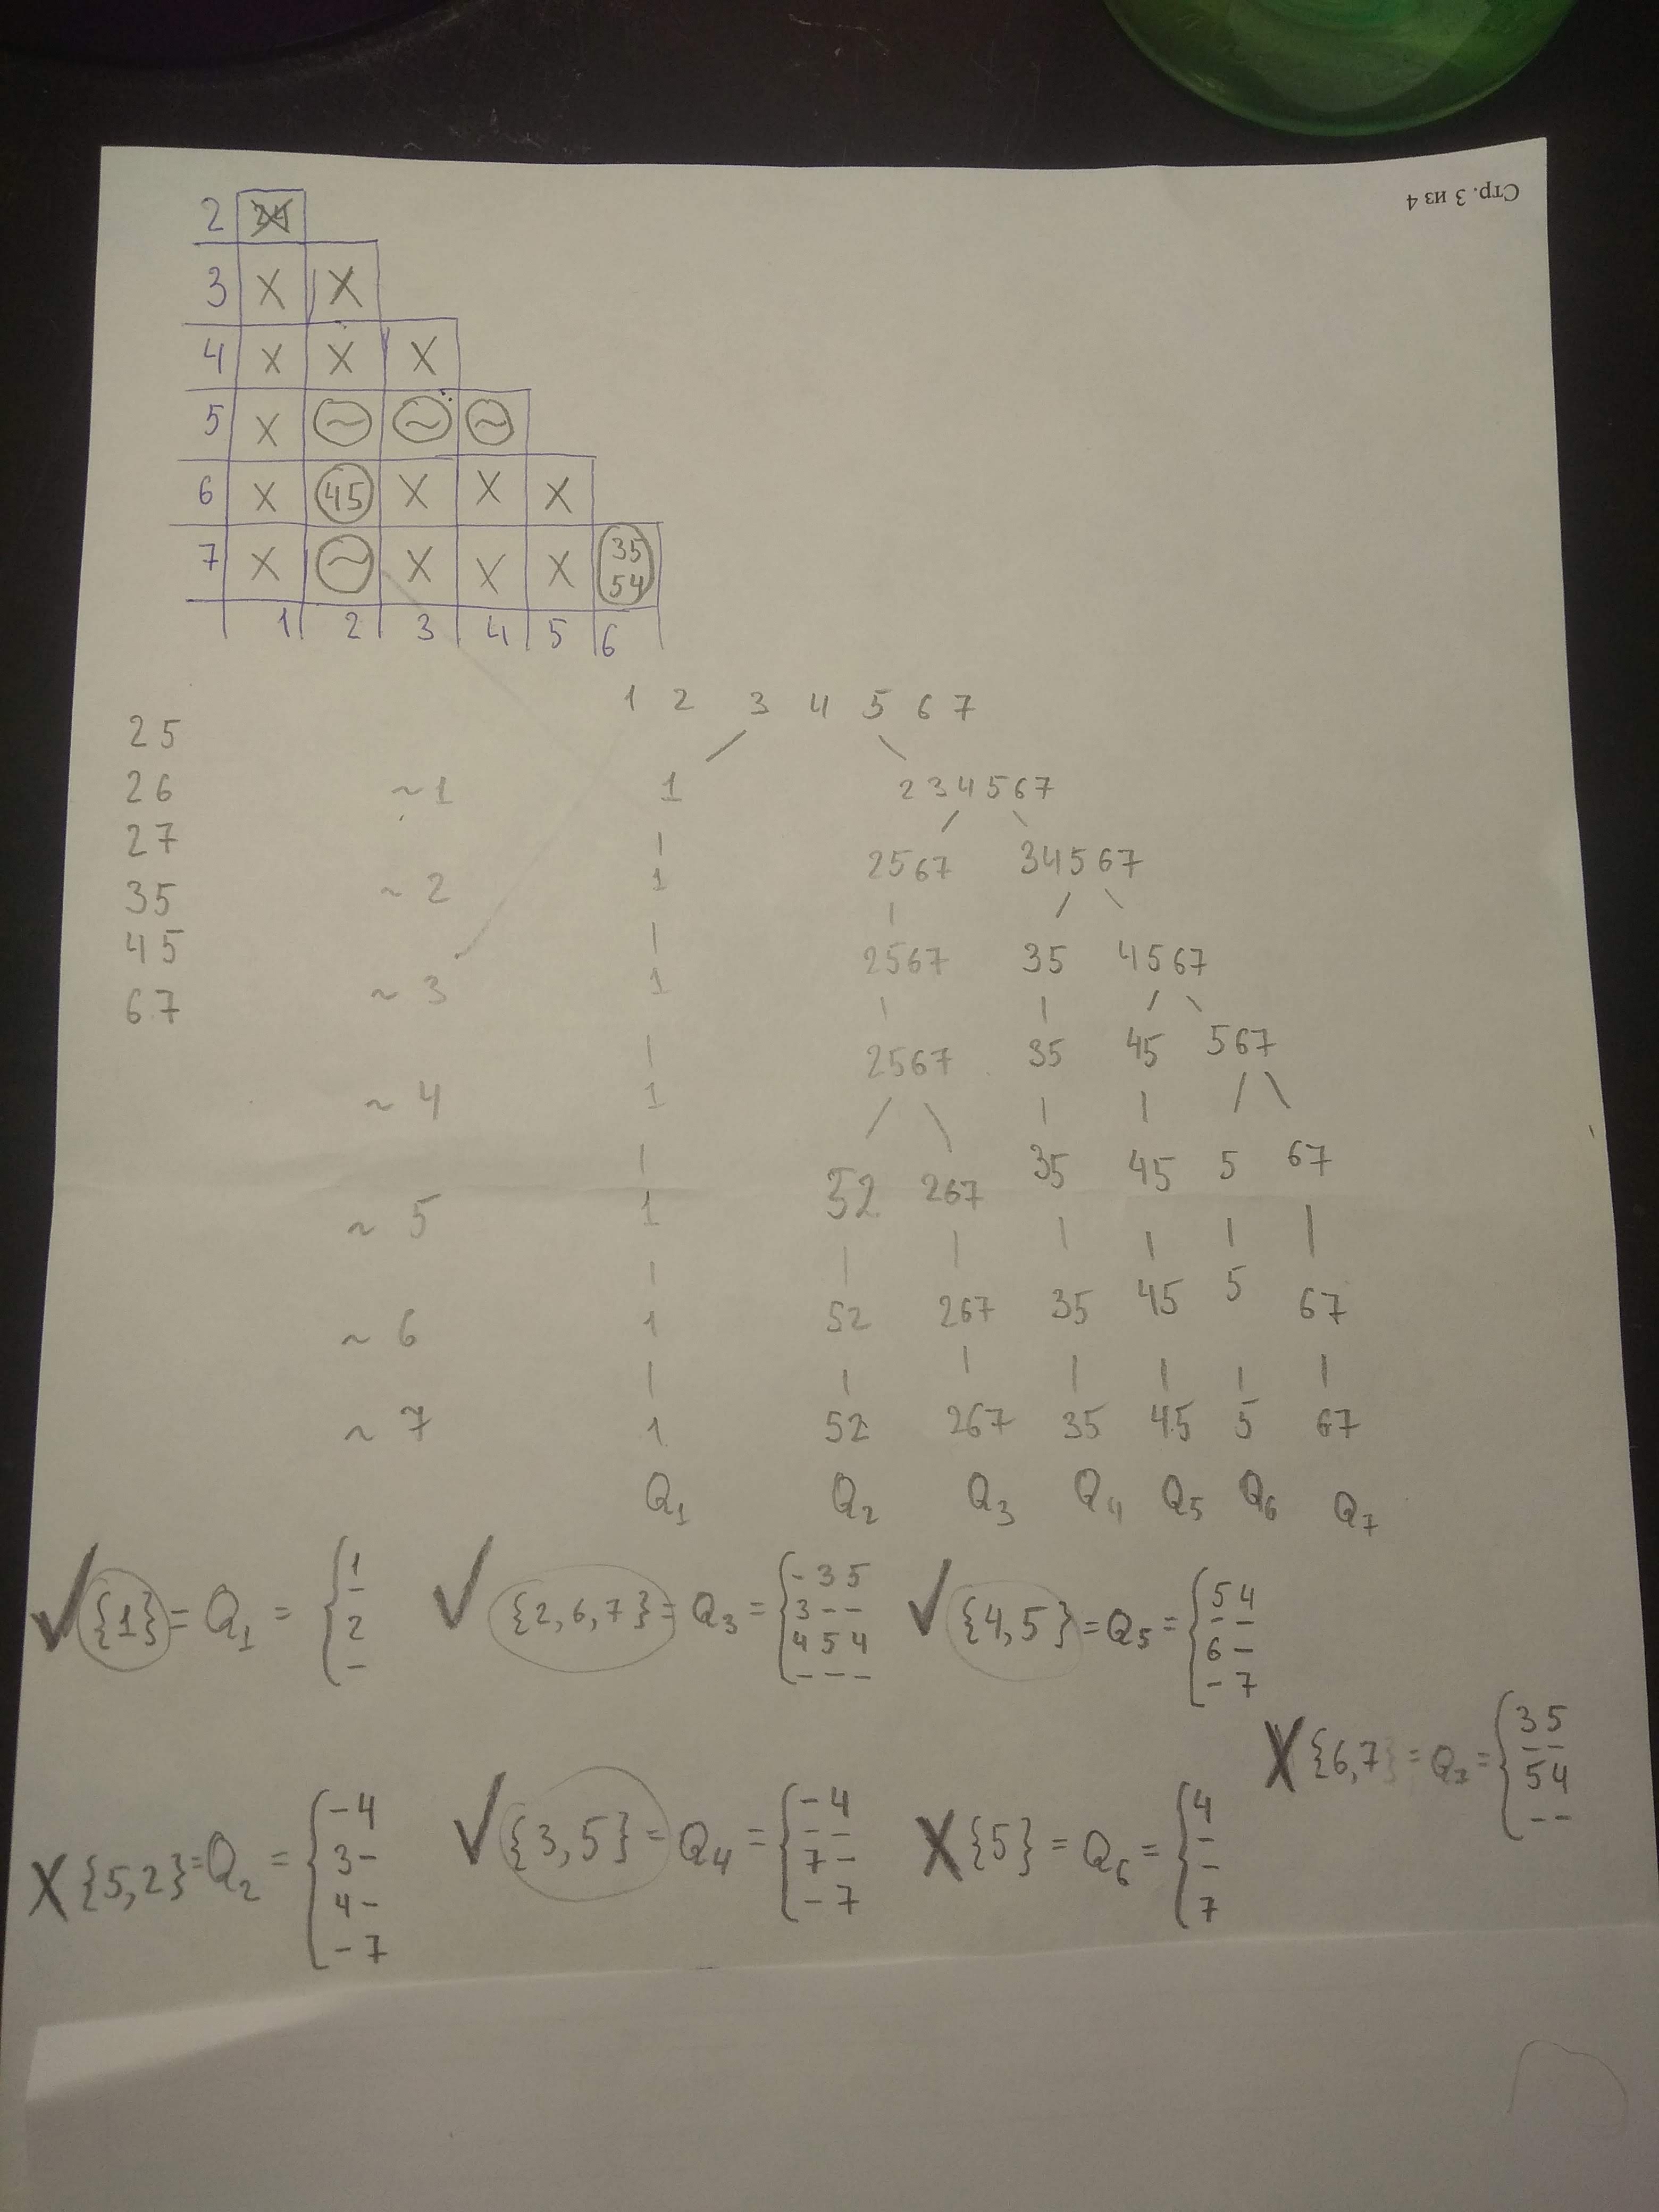 Стр. 3 из 4
2
3 X X
4 X X X
5 X ~ ~ ~
6 X 45 X X X
7 X ~ X X X 35 54
1 2 3 4 5 6
1 2 3 4 5 6 7
25
26
27
35
45
67
~1 1 234567
~2 1 2567 34567
~3 1 2567 35 4567
~4 1 2567 35 45 567
~5 1 52 267 35 45 5 67
~6 1 52 267 35 45 5 67
~7 1 52 267 35 45 5 67
Q1 Q2 Q3 Q4 Q5 Q6 Q7
✓ {1} = Q1 = { 1 - 2 -
✓ {2,6,7} = Q3 = { -35 3-- 454 ---
✓ {4,5} = Q5 = { 54 -- 6- -7
X {6,7} = = { 35 -- 54 --
X {5,2} = Q2 = { -4 3- 4- -7
✓ {3,5} = Q4 = { -4 -- 7- -7
X {5} = Q6 = { 4 - - 7